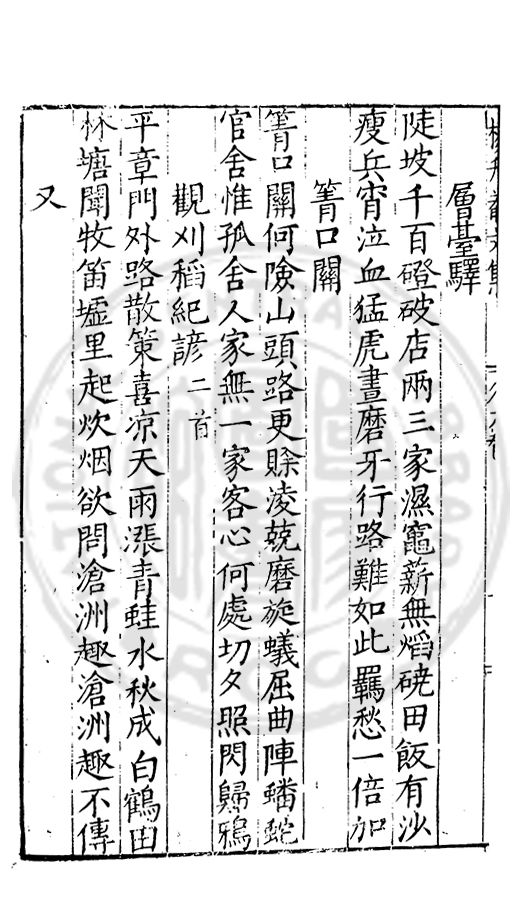 層臺驛
陡坡千百磴破店兩三家濕竈薪無熖磽田飯有沙
瘦兵宵泣血猛虎晝磨牙行路難如此羈愁一倍加
箐口關
箐口關何險山頭路更賒淩兢磨旋蟻屈曲陣蟠蛇
官舍惟孤舍人家無一家客心何處切夕照閃歸鴉
觀刈稻紀諺二首
平章門外路散策喜凉天雨漲青蛙水秋成白鶴田
林塘聞牧笛墟里起炊烟欲問滄洲趣滄洲趣不傳
又